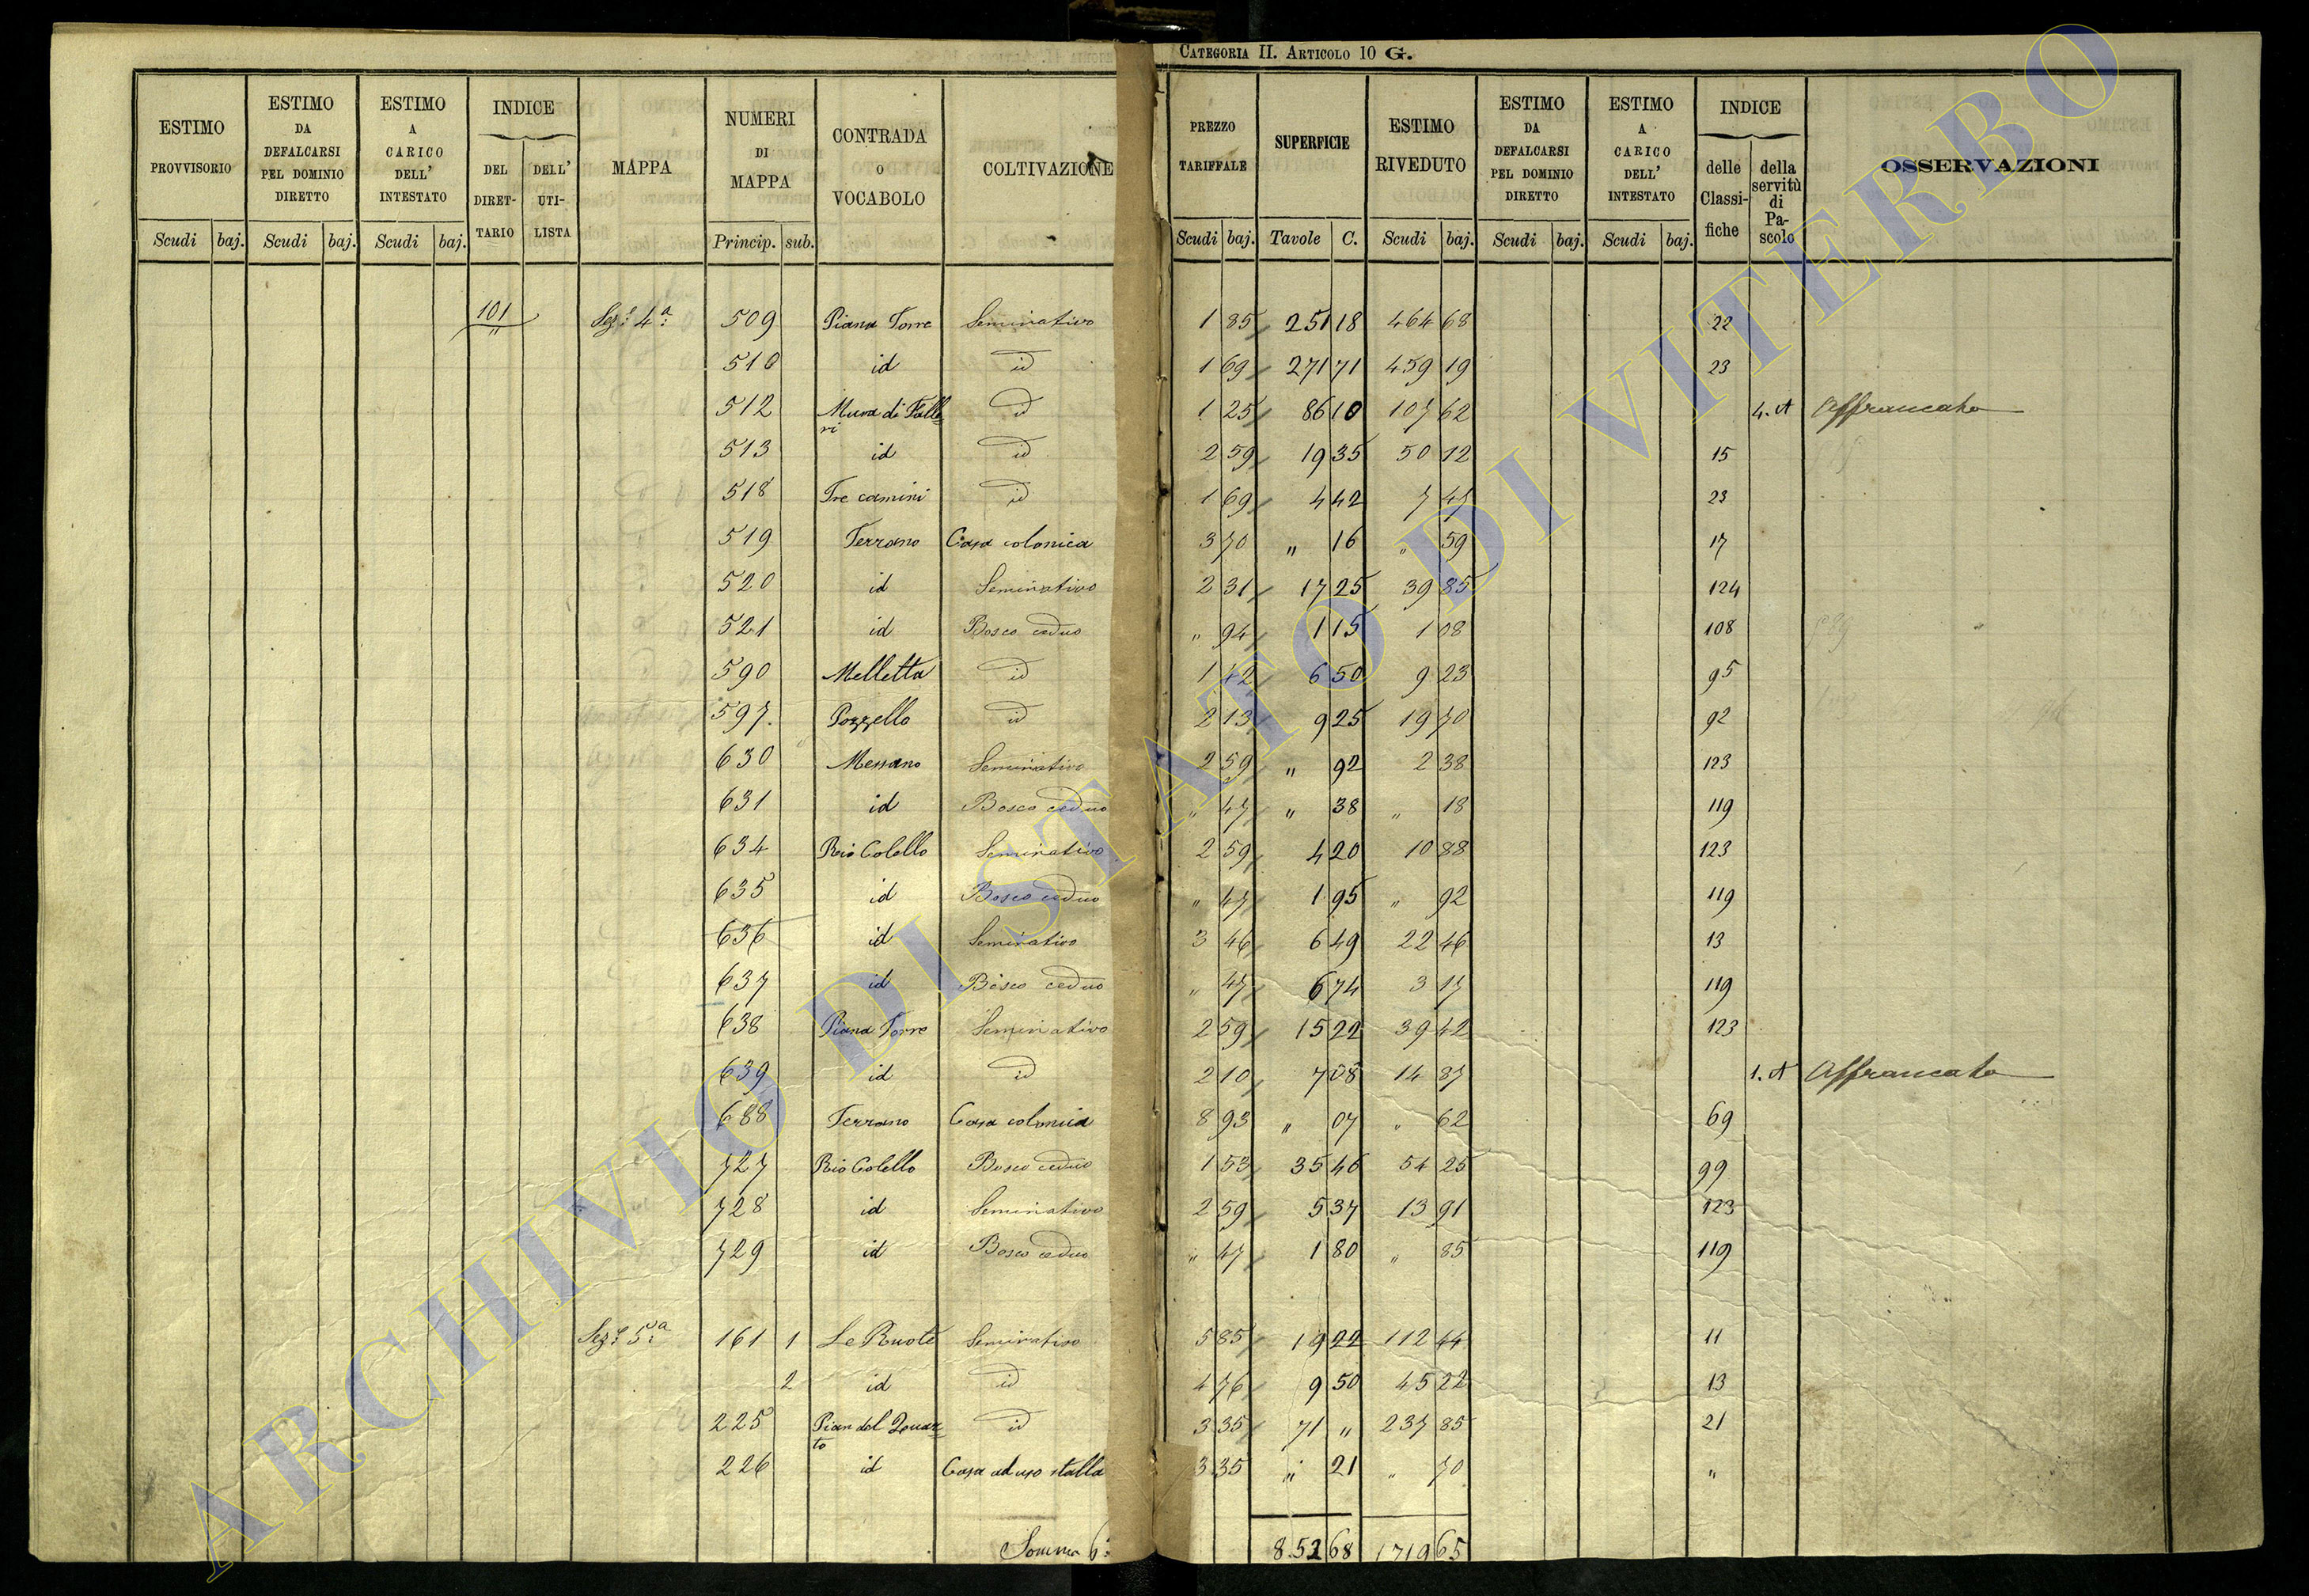 CATEGORIA II. ARTICOLO 10 G.
ESTIMO PROVVISORIO | ESTIMO DA DEFALCARSI PEL DOMINIO DIRETTO | ESTIMO A CARICO DELL' INTESTATO | INDICE DEL DIRET-TARIO | DELL' UTI-LISTA | MAPPA | NUMERI DI MAPPA | CONTRADA O VOCABOLO | COLTIVAZIONE | PREZZO TARIFFALE | SUPERFICIE | ESTIMO RIVEDUTO | ESTIMO DA DEFALCARSI PEL DOMINIO DIRETTO | ESTIMO A CARICO DELL' INTESTATO | INDICE delle Classi-fiche | della servitù di Pa-scolo | OSSERVAZIONI
Scudi | baj. | Scudi | baj. | Scudi | baj. | Princip. | sub. | Scudi | baj. | Tavole | C. | Scudi | baj. | Scudi | baj. | Scudi | baj.
101 | Sez.e 4a | 509 | Piana Torre | Seminativo | 1 85 | 251 18 | 464 68 | 22
" | 510 | id | id | 1 69 | 271 71 | 459 19 | 23
512 | Mura di Falleri | id | 1 25 | 86 10 | 107 62 | 4. A | Affrancato
513 | id | id | 2 59 | 19 35 | 50 12 | 15
518 | Tre camini | id | 1 69 | 4 42 | 7 47 | 23
519 | Terrano | Casa colonica | 3 70 | " 16 | " 59 | 17
520 | id | Seminativo | 2 31 | 17 25 | 39 85 | 124
521 | id | Bosco ceduo | " 94 | 1 15 | 1 08 | 108
590 | Melletta | id | 1 42 | 6 50 | 9 23 | 95
597. | Pozzello | id | 2 13 | 9 25 | 19 70 | 92
630 | Messano | Seminativo | 2 59 | " 92 | 2 38 | 123
631 | id | Bosco ceduo | " 47 | " 38 | " 18 | 119
634 | Rio Colello | Seminativo | 2 59 | 4 20 | 10 88 | 123
635 | id | Bosco ceduo | " 47 | 1 95 | " 92 | 119
636 | id | Seminativo | 3 46 | 6 49 | 22 46 | 13
637 | id | Bosco ceduo | " 47 | 6 74 | 3 17 | 119
638 | Piana Torre | Seminativo | 2 59 | 15 22 | 39 42 | 123
639 | id | id | 2 10 | 7 08 | 14 87 | 1. A | Affrancato
688 | Terrano | Casa colonica | 8 93 | " 07 | " 62 | 69
727 | Rio Colello | Bosco ceduo | 1 53 | 35 46 | 54 25 | 99
728 | id | Seminativo | 2 59 | 5 37 | 13 91 | 123
729 | id | Bosco ceduo | " 47 | 1 80 | " 85 | 119
Sez.e 5a | 161 | 1 | Le Ruote | Seminativo | 5 85 | 19 22 | 112 44 | 11
2 | id | id | 4 76 | 9 50 | 45 22 | 13
225 | Pian del Quarto | id | 3 35 | 71 " | 237 85 | 21
226 | id | Casa ad uso stalla | 3 35 | " 21 | " 70 | "
Somma | 8.52 68 | 1719 65
ARCHIVIO DI STATO DI VITERBO